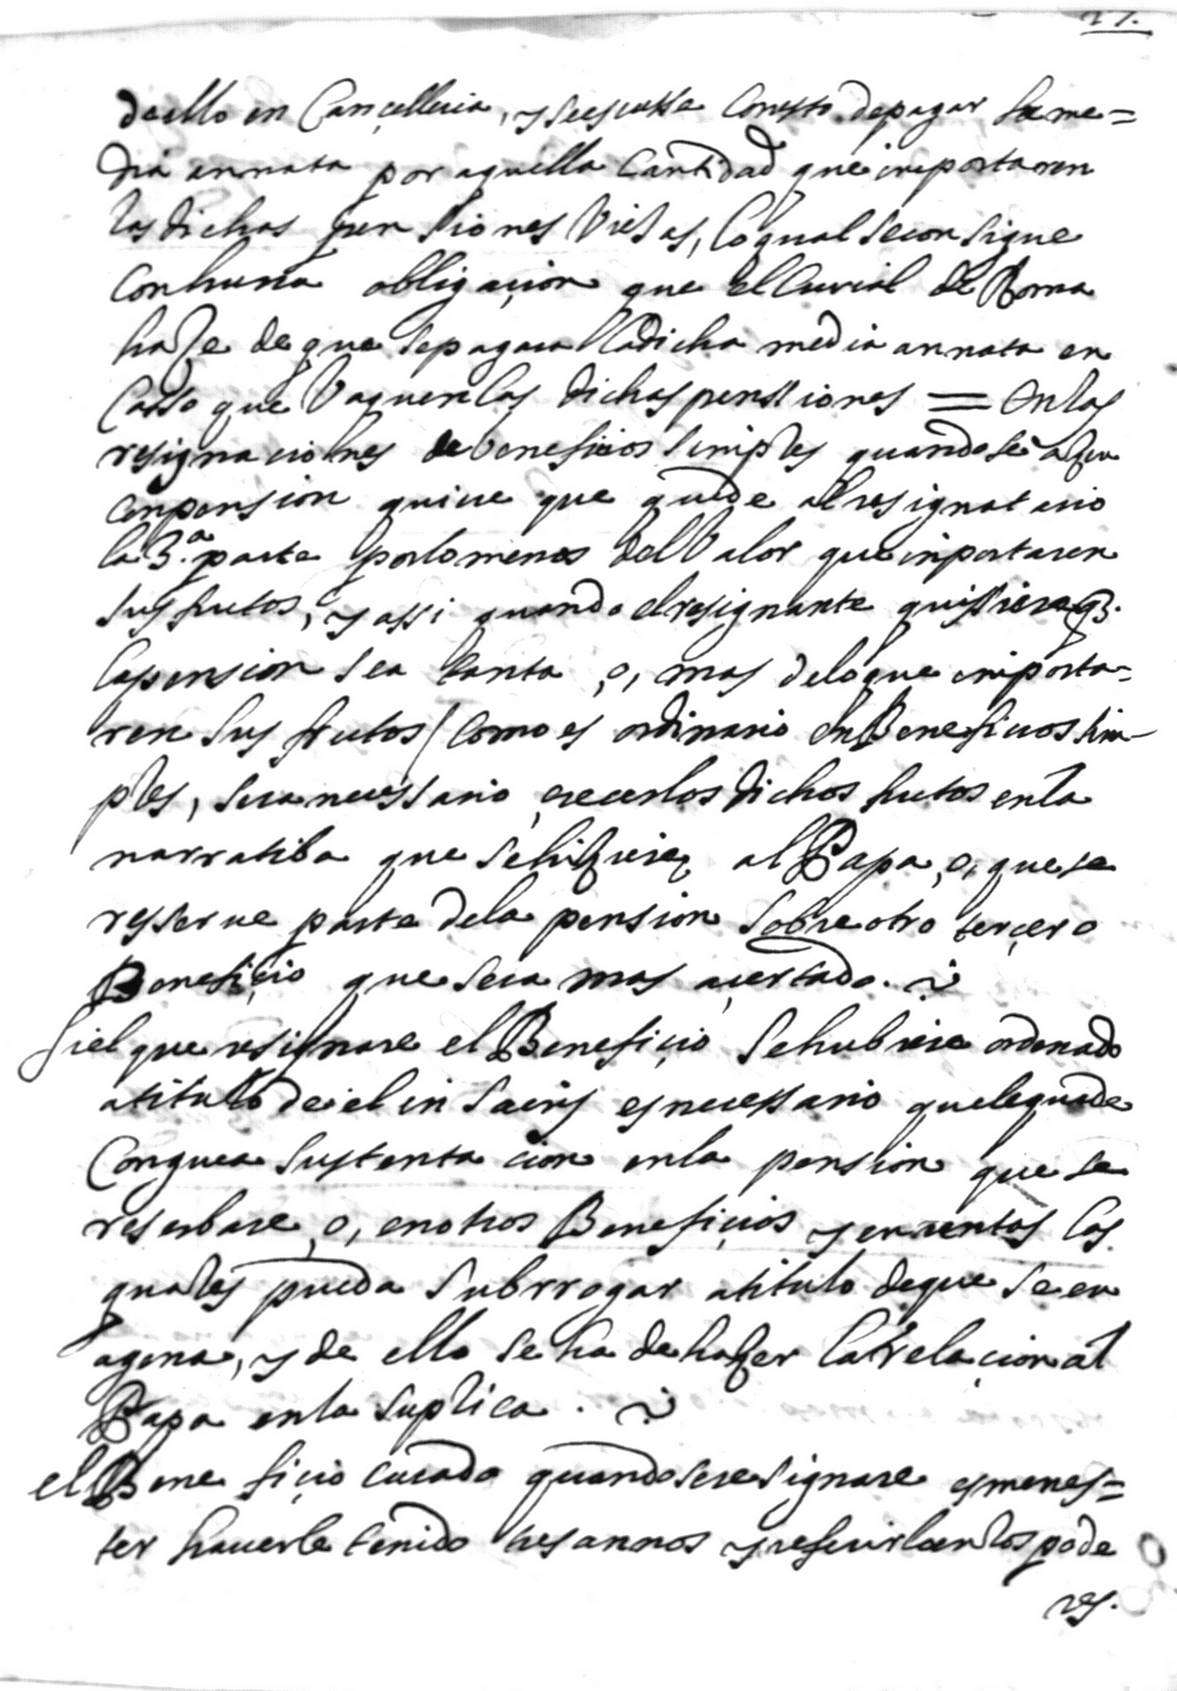 27.
de ello en Cançelleria, y se escussa con esto de pagar la me=
dia annata por aquella Cantidad que importaren
las dichas penssiones Viejas, lo qual se consigue
con huna obligaçion que el Curial de Roma
haze de que se pagara la dicha media annata en
Casso que Vaquen las dichas penssiones = En las
resignaciones de beneficios simples quando se azen
con pension quiere que quede al resignatario
la 3.ª parte por lo menos del Valor que importaren
sus frutos, y assi quando el resignante quissiere q.
la pension sea tanta, o, mas de lo que importa-
ren sus frutos (como es ordinario en Beneficios sim-
ples, sera necessario, creçer los dichos frutos en la
narratiba que se hiziere al Papa, o, que se
resserue parte de la pension sobre otro terçero
Benefiçio que sera mas açertado.
Si el que resignare el Benefiçio se hubiere ordenado
a titulo de el in Sacris es necessario que le quede
Congrua sustentacion en la pension que se
reserbare, o, en otros Benefiçios y en rentas las
quales pueda subrrogar a titulo de que se en
agena, y de ello se ha de hazer la relaçion al
Papa en la suplica.
el Benefiçio curado quando se resignare es menes=
ter hauerle tenido tres annos y referirlo en los pode
res.